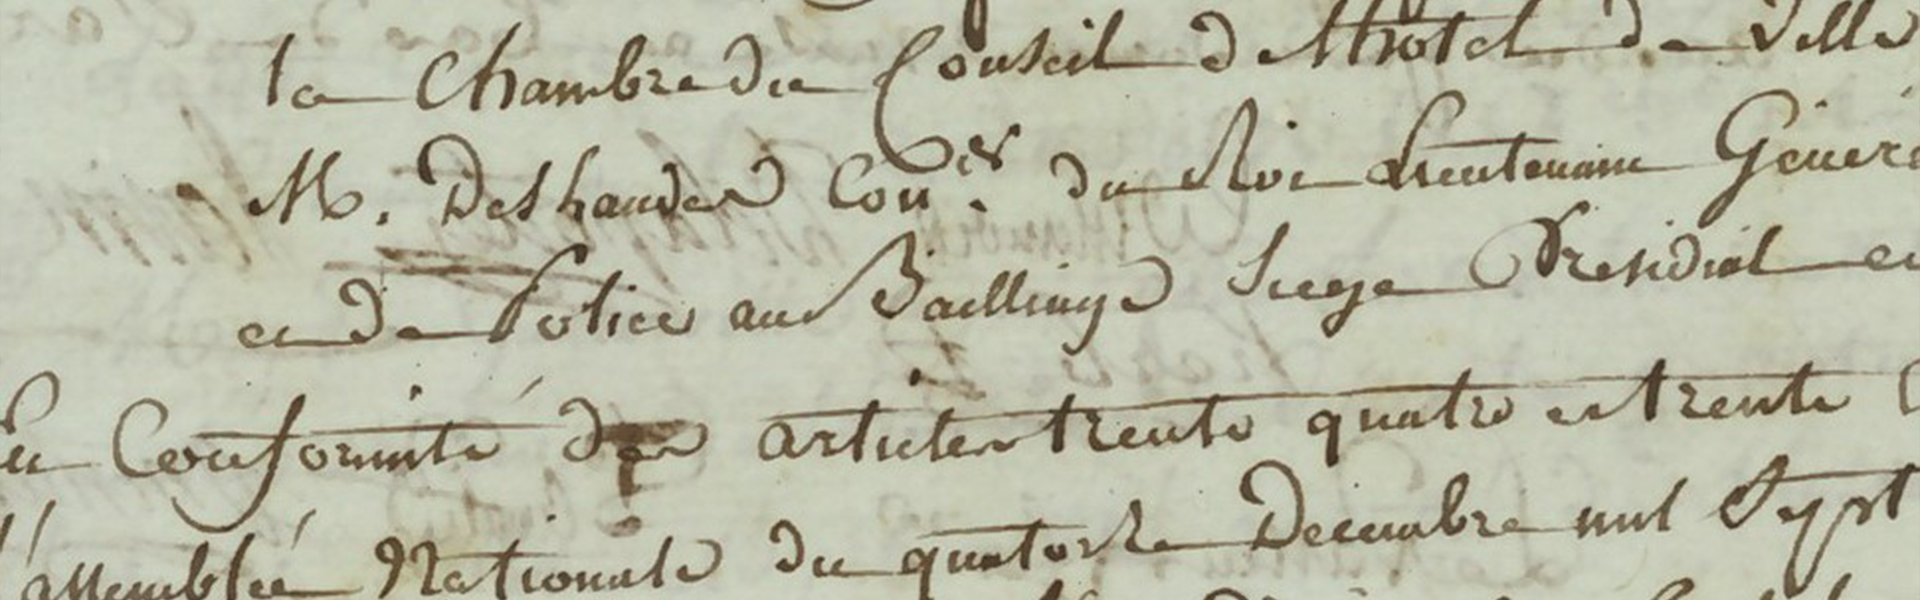 la Chambre du Conseil de l'hotel de Ville
M. Deshandes Con.er du Roi Lieutenant Généra
et de Police au Bailliage Siege Presidial et
En Conformité des articles trente quatre et trente
l'assemblée Nationale du quatorze Decembre mil Sept